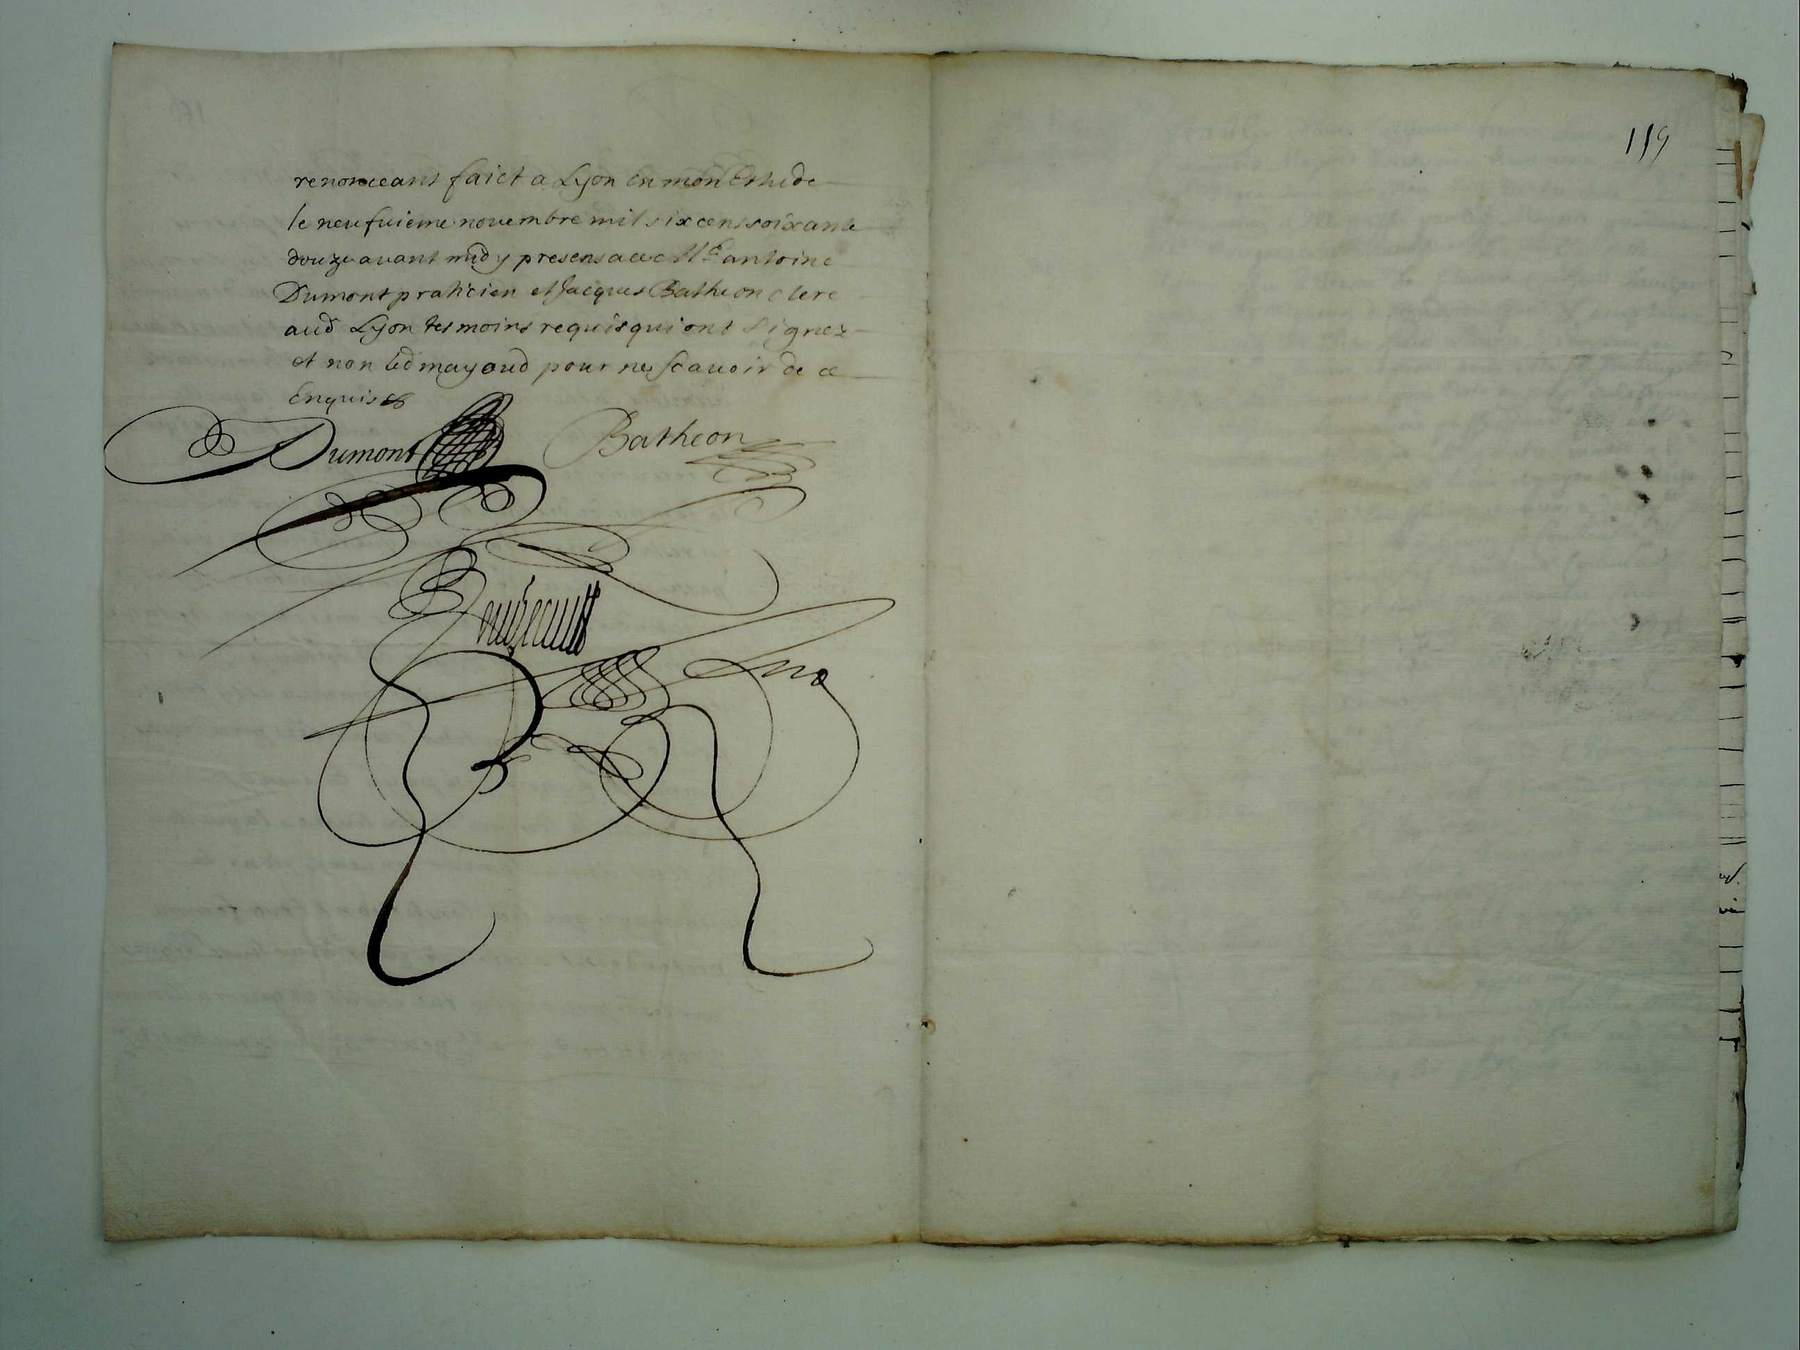 renonceant faict a Lyon en mon Estude
le neufuieme novembre mil six cens soixante
douze auant midy presens a ce Me antoine
Dumont praticien et Jacques Batheon clerc
aud Lyon tesmoins requis qui ont signez
et non led mayoud pour ne scauoir de ce
Enquis
Dumont Batheon
119